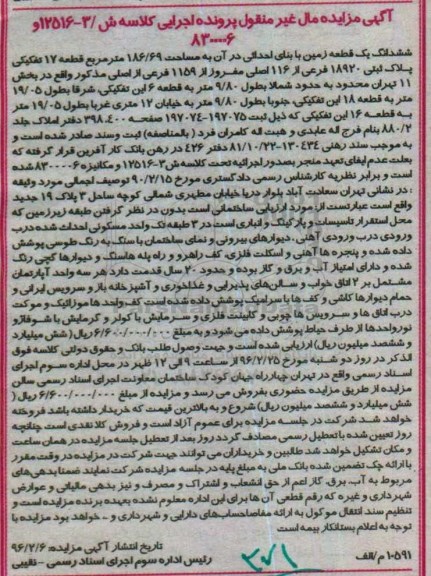 آگهی مزایده مال غیر منقول پرونده اجرایی کلاسه ش /۳-۱۲۵۱۶و
۸۳۰۰۰۰۶
ششدانگ یک قطعه زمین با بنای احداثی در آن به مساحت ۱۸۶/۶۹ متر مربع قطعه ۱۷ تفکیکی
پلاک ثبتی ۱۸۹۲۰ فرعی از ۱۱۶ اصلی مفروز از ۱۱۵۹ فرعی از اصلی مذکور واقع در بخش
۱۱ تهران محدود به حدود شمالا بطول ۹/۸۰ متر به قطعه ۶ این تفکیکی، شرقا بطول ۱۹/۰۵
متر به قطعه ۱۸ این تفکیکی، جنوبا بطول ۹/۸۰ متر به خیابان ۱۲ متری غربا بطول ۱۹/۰۵ متر
به قطعه ۱۶ این تفکیکی که ذیل ثبت ۱۹۷۰۷۵-۱۹۷۰۷۴ صفحه ۳۹۸،۴۰۰ دفتر املاک جلد
۸۸۰/۲ بنام فرج اله عابدی و هبت اله کامران فرد ( بالمناصفه) ثبت وسند صادر شده است و
به موجب سند رهنی ۱۳۰۴۳۴-۸۱/۱۰/۲۲ دفتر ۴۲۶ در رهن بانک کار آفرین قرار گرفته که
بعلت عدم ایفای تعهد منجر بصدور اجرائیه تحت کلاسه ش۳-۱۲۵۱۶ و مکانیزه ۸۳۰۰۰۰۶ شده
است و برابر نظریه کارشناس رسمی دادگستری مورخ ۹۰/۲/۱۵ توصیف اجمالی مورد وثیقه
: در نشانی تهران سعادت آباد بلوار دریا خیابان مطهری شمالی کوچه ساحل ۳ پلاک ۱۹ جدید
واقع است عبارتست از: مورد ارزیابی ساختمانی است بدون در نظر گرفتن طبقه زیرزمین که
محل استقرار تاسیسات و پارکینگ و انباری است در ۳ طبقه تک واحد مسکونی احداث شده درب
ورودی درب ورودی آهنی، دیوارهای بیرونی و نمای ساختمان با سنگ به رنگ طوسی پوشش
داده شده و پنجره ها آهنی و اسکلت فلزی، کف راهرو و راه پله هاسنگ و دیوارها گچی رنگ
شده و دارای امتیاز آب و برق و گاز بوده و حدود ۲۰ سال قدمت دارد هر سه واحد آپارتمان
مشتمل بر ۲ اتاق خواب و سالن های پذیرایی و غذاخوری و آشپزخانه باز و سرویس ایرانی و
حمام دیوارها کاشی و کف ها با سرامیک پوشش داده شده است کف واحد ها موزائیک و موکت
درب اتاق ها و سرویس ها چوبی و کابینت فلزی و سرمایش با کولر و گرمایش با شوفاژ و
نور واحدها از طرف حیاط پوشش داده می شود و به مبلغ ۶/۶۰۰/۰۰۰/۰۰۰ ریال (شش میلیارد
و ششصد میلیون ریال) ارزیابی شده است و جهت وصول طلب بانک و حقوق دولتی کلاسه فوق
الذکر در روز دو شنبه مورخ ۹۶/۲/۲۵ از ساعت ۹ الی ۱۲ ظهر در محل اداره سوم اجرای
اسناد رسمی واقع در تهران چهارراه جهان کودک ساختمان معاونت اجرای اسناد رسمی سالن
مزایده از طریق مزایده حضوری بفروش می رسد و مزایده از مبلغ ۶/۶۰۰/۰۰۰/۰۰۰ ریال (
شش میلیارد و ششصد میلیون ریال) شروع و به بالاترین قیمت که خریدار داشته باشد فروخته
خواهد شد شرکت در جلسه مزایده برای عموم آزاد است و فروش کلا نقدی است چنانچه
روز تعیین شده با تعطیل رسمی مصادف گردد روز بعد از تعطیل جلسه مزایده در همان ساعت
و مکان تشکیل خواهد شد طالبین و خریداران می توانند جهت شرکت در مزایده در وقت مقرر
با ارائه چک تضمین شده بانک ملی به مبلغ پایه در جلسه مزایده شرکت نمایند ضمنا بدهی های
مربوط به آب، برق، گاز اعم از حق انشعاب و اشتراک و مصرف و نیز بدهی مالیاتی و عوارض
شهرداری و غیره که رقم قطعی آن ها برای این اداره معلوم نشده بعهده برنده مزایده است و
تنظیم سند انتقال موکول به ارائه مفاصاحساب های دارایی و شهرداری و .. خواهد بود مزایده با
توجه به اعلام بستانکار بیمه است
تاریخ انتشار آگهی مزایده: ۹۶/۲/۶
۱۰۵۹۱ م/الف
رئیس اداره سوم اجرای اسناد رسمی - نقیبی